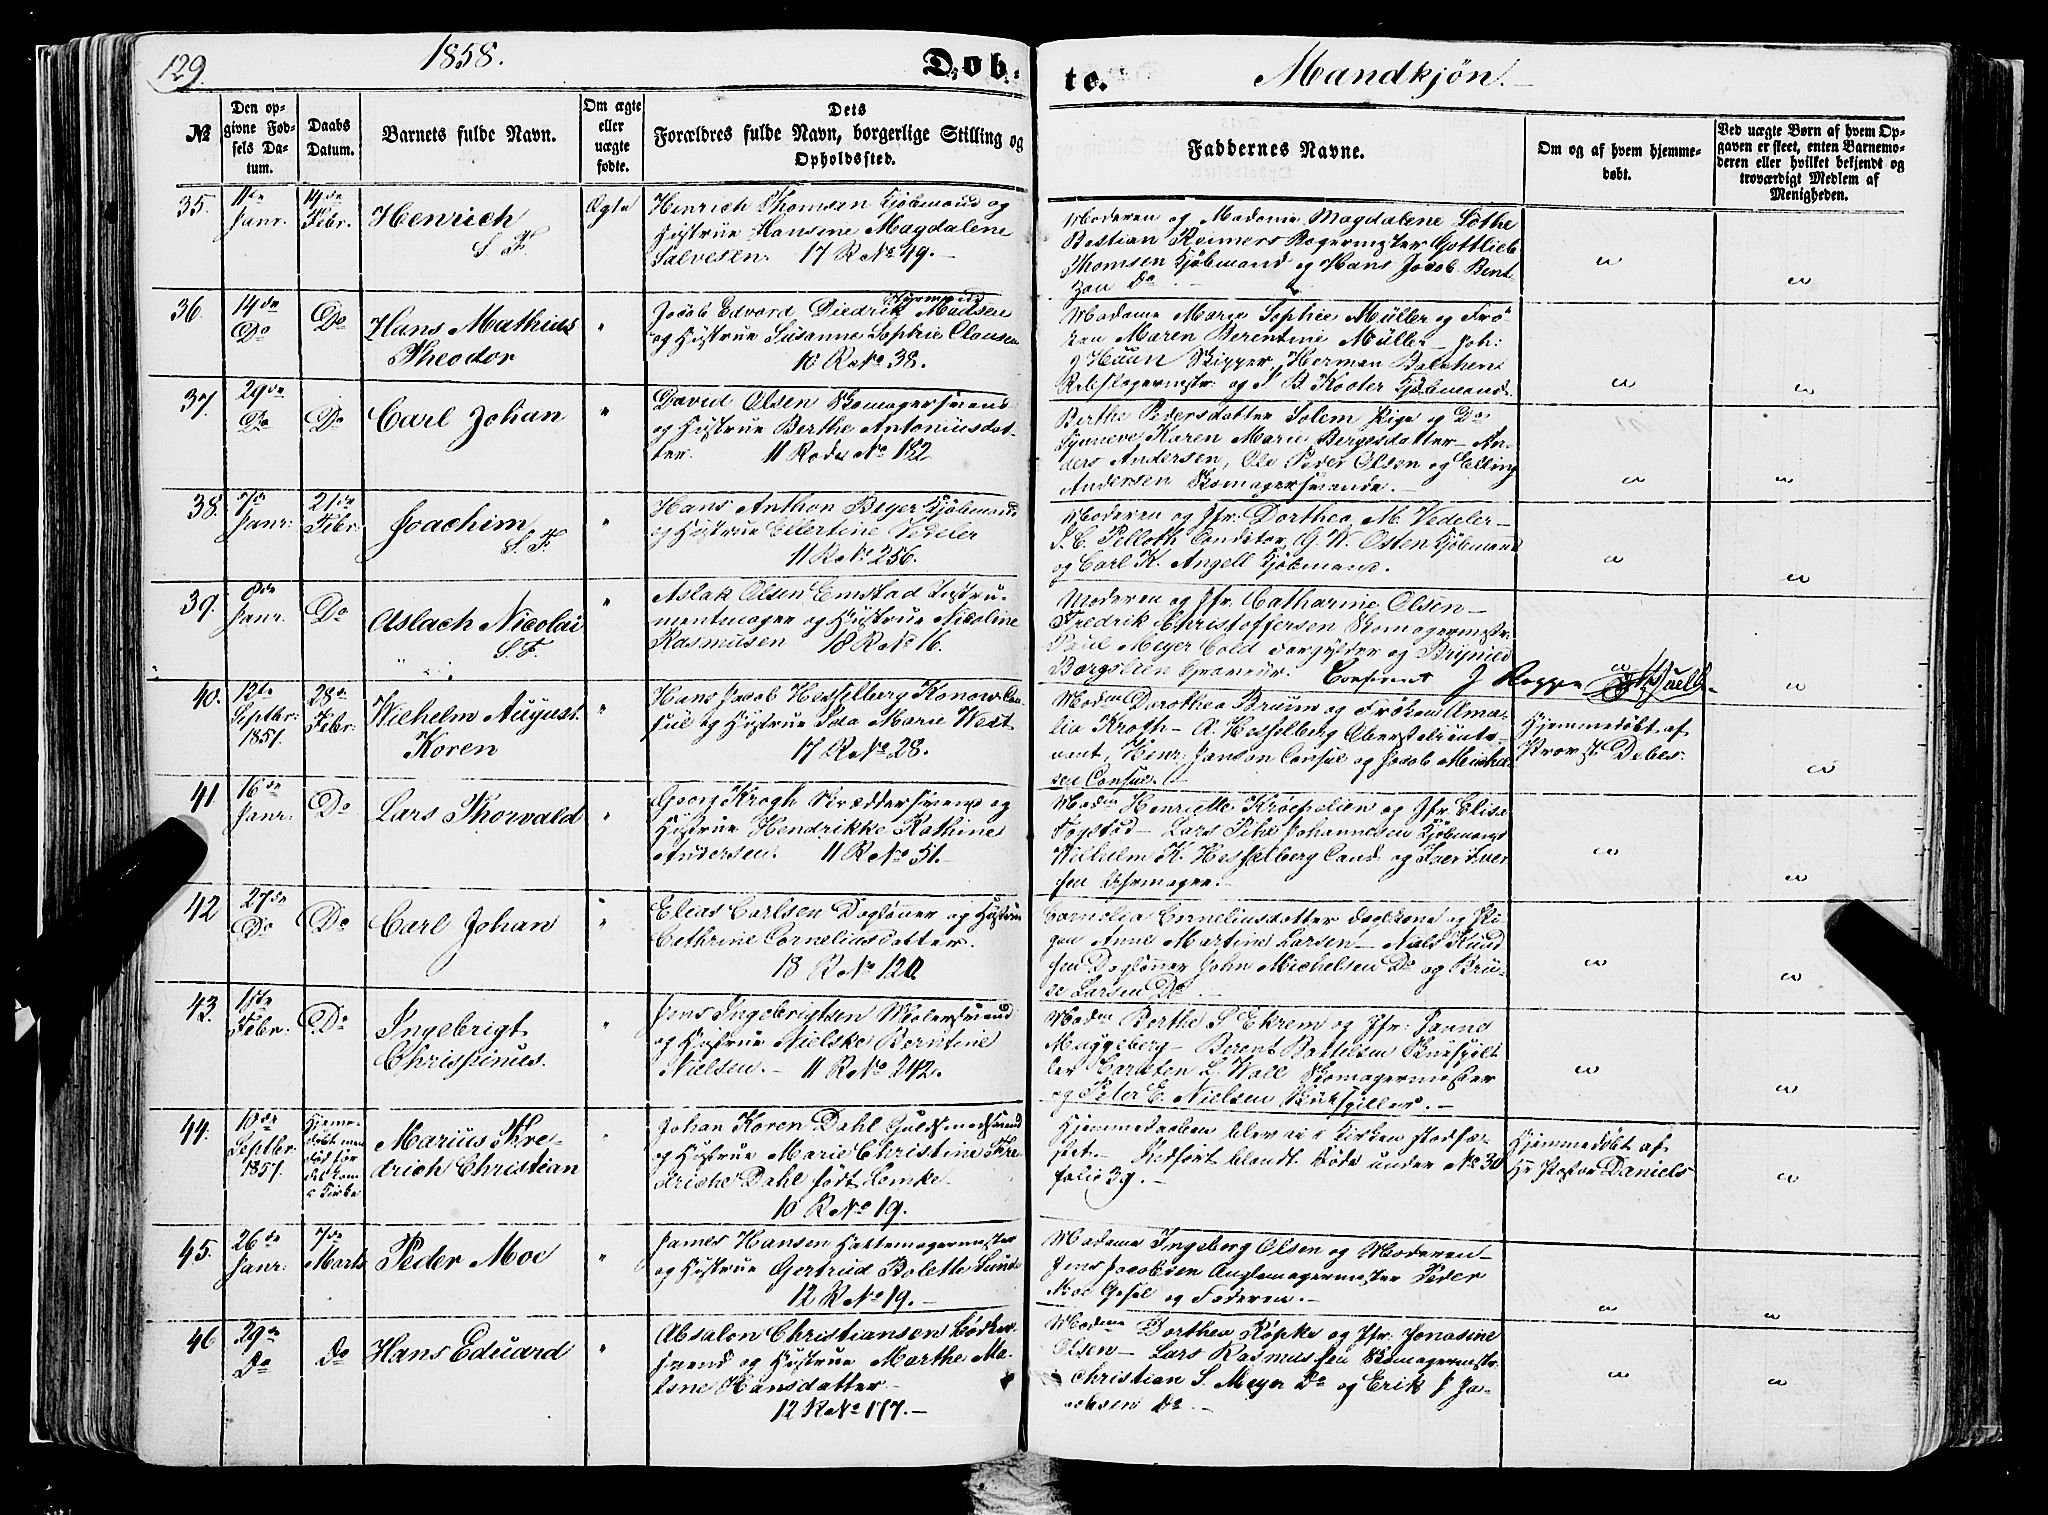 129.
1858.
Døb-
te.
Mandkjøn.
№
Den op-
givne Fød-
sels Da-
tum.
Daabs
Datum.
Barnets fulde Navn.
Om ægte
eller
uægte
fødte.
Dets
Forældres fulde Navn, borgerlige Stilling og
Opholdssted.
Faddernes Navne.
Om og af hvem hjemme-
døbt.
Ved uægte Børn af hvem Op-
gaven er skeet, enten Barnemo-
deren eller hvilket bekjendt og
troværdigt Medlem af
Menigheden.
35.
11te
Janr.
14de
Febr.
Henrich
S. F.
Ægte
Henrich Thomsen Kjøbmand og
Hustrue Hansine Magdalene
Salvesen. 17 R No 49.
Moderen og Madame Magdalene Løthe
Bastian Reimers Bagermester Gottlieb
Thomsen Kjøbmand og Hans Jacob Bent-
zon Do
36.
14de
Do
Do
Hans Mathias
Theodor
"
Styrmand
Jacob Edvard Diedrik Madsen
og Hustrue Susanne Sophie Clausen
10 R No 38.
Madame Marie Sophie Müller og Frø-
ken Maren Berentine Müller Joh:
J Huun Skipper, Herman Balchen
Rebslagermstr: og J B Kooter Kjøbmand.
37.
29de
Do
Do
Carl Johan
"
David Olsen Skomagersvend
og Hustrue Berthe Antoniusdat-
ter. 11 Rode No 182
Berthe Pedersdatter Solem Pige og Do
Synneve Karen Marie Børgesdatter An-
ders Andersen, Ole Peder Olsen og Elling
Andersen Skomagersvende.
38.
7de
Janr:
21de
Febr:
Joachim
S. F.
"
Hans Anthon Beyer Kjøbmand
og Hustrue Ellertine Vedeler
11 R No 256.
Moderen og Jfr: Dorthea M. Vedeler
J. C. Pelloth Conditor, G. W. Osten Kjøbmand
og Carl K. Angell Kjøbmand.
39.
8de
Janr.
Do
Aslach Nicolai
S. F.
"
Aslak Olsen Emstad Instru-
mentmager og Hustrue Nicoline
Rasmusen 18 R No 16.
Moderen og Jfr. Catharine Olsen
Fredrik Christoffersen Skomagermstr:
Paul Meyer Cold Forgylder og Brynild
Bergslien Graveur. Confereret J Koppe
40.
12te
Septbr:
1857.
28de
Febr:
Wilhelm August
Koren
"
Hans Jacob Hesselberg Konow Con-
sul og Hustrue Ida Marie West
17 R No 28.
Madm Dorothea Bruun og Frøken Ama-
lia Kroth A. Hesselberg Oberstlieute-
nant, Henr: Janson Consul og Jacob Michel-
sen Consul.
Hjemmedøbt af
Provst Debes.
41
16de
Janr:
Do
Lars Thorvald
"
Georg Krogh Skræddersvend og
Hustrue Hendrikke Kathine
Andersen. 11 R No 51.
Madm Henriette Krøepelien og Jfr. Elisa
Fogstad Lars Pihe Johannesen Kjøbmand
Wilhelm K. Hesselberg Cand. og Iver Iver
sen Uhrmager.
42
27de
Do
Do
Carl Johan
"
Elias Carlsen Dagløner og Hustrue
Cethrine Corneliusdatter.
18 R No 120
Cornelia Corneliusdatter Daglkone og Pi-
gen Anne Martine Larsen Niels Knud
sen Dagløner John Michelsen Do og Brü-
se Larsen Do
43.
11te
Febr:
Do
Ingebrigt
Chrispinus.
"
Jens Ingebrigtsen Malersvend
og Hustrue Nielske Berntine
Nielsen. 11 R No 242.
Madm Berthe S Ekrem og Jfr: Janne
Maggeberg Berent Bertelsen Skuespil-
ler Carsten L. Wall Skomagermester
og Peter E. Nielsen Skuespiller.
44.
10de
Septbr:
1857.
Hjeme-
døbt men
død før
det kom
i Kirke
Marius Fre-
drich Christian
"
Johan Koren Dahl Guldsmedsvend
og Hustrue Marie Christine Fre-
driche Dahl født Lemke.
10 R No 19.
Hjemmedaaben blev ei i Kirken stadfæ-
stet. Indført blandt Døde under No 30
folio 39.
Hjemmedøbt af
Hr Pastor Daniels
45.
26de
Janr:
7de
Marts
Peder Moe
"
James Hansen Hattemagermester
og Hustrue Gertrud Boletha Sunde
12 R No 19.
Madame Ingeborg Olsen og Moderen
Jens Jacobsen Anglemagermester Peder
Moe Gesel og Faderen.
46
29de
Do
Do
Hans Eduard
"
Absalon Christiansen Bødker-
svend og Hustrue Marthe Ma-
lene Hansdatter
12 R No 177.
Madme Dorthea Køpke og Jfr: Jonasine
Olsen Lars Rasmussen Skomagermstr.
Christian S. Meyer Do og Erik J Ja-
cobsen Do.